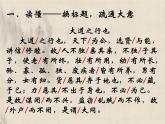 一、读懂——换标题，疏通大意
大道之行也
大道之行也，天下/为公。选贤/与能，讲信/修睦。故/人/不独/亲其亲，不独/子其子，使/老有所终，壮有所用，幼有所长，矜、寡、孤、独、废疾者/皆有所养，男有分，女有归。货/恶其/弃于地也，不必/藏于己；力/恶其/不出于身也，不必/为己。是故/谋闭/而不兴，盗窃乱贼/而不作，故/外户/而不闭，是谓/大同。